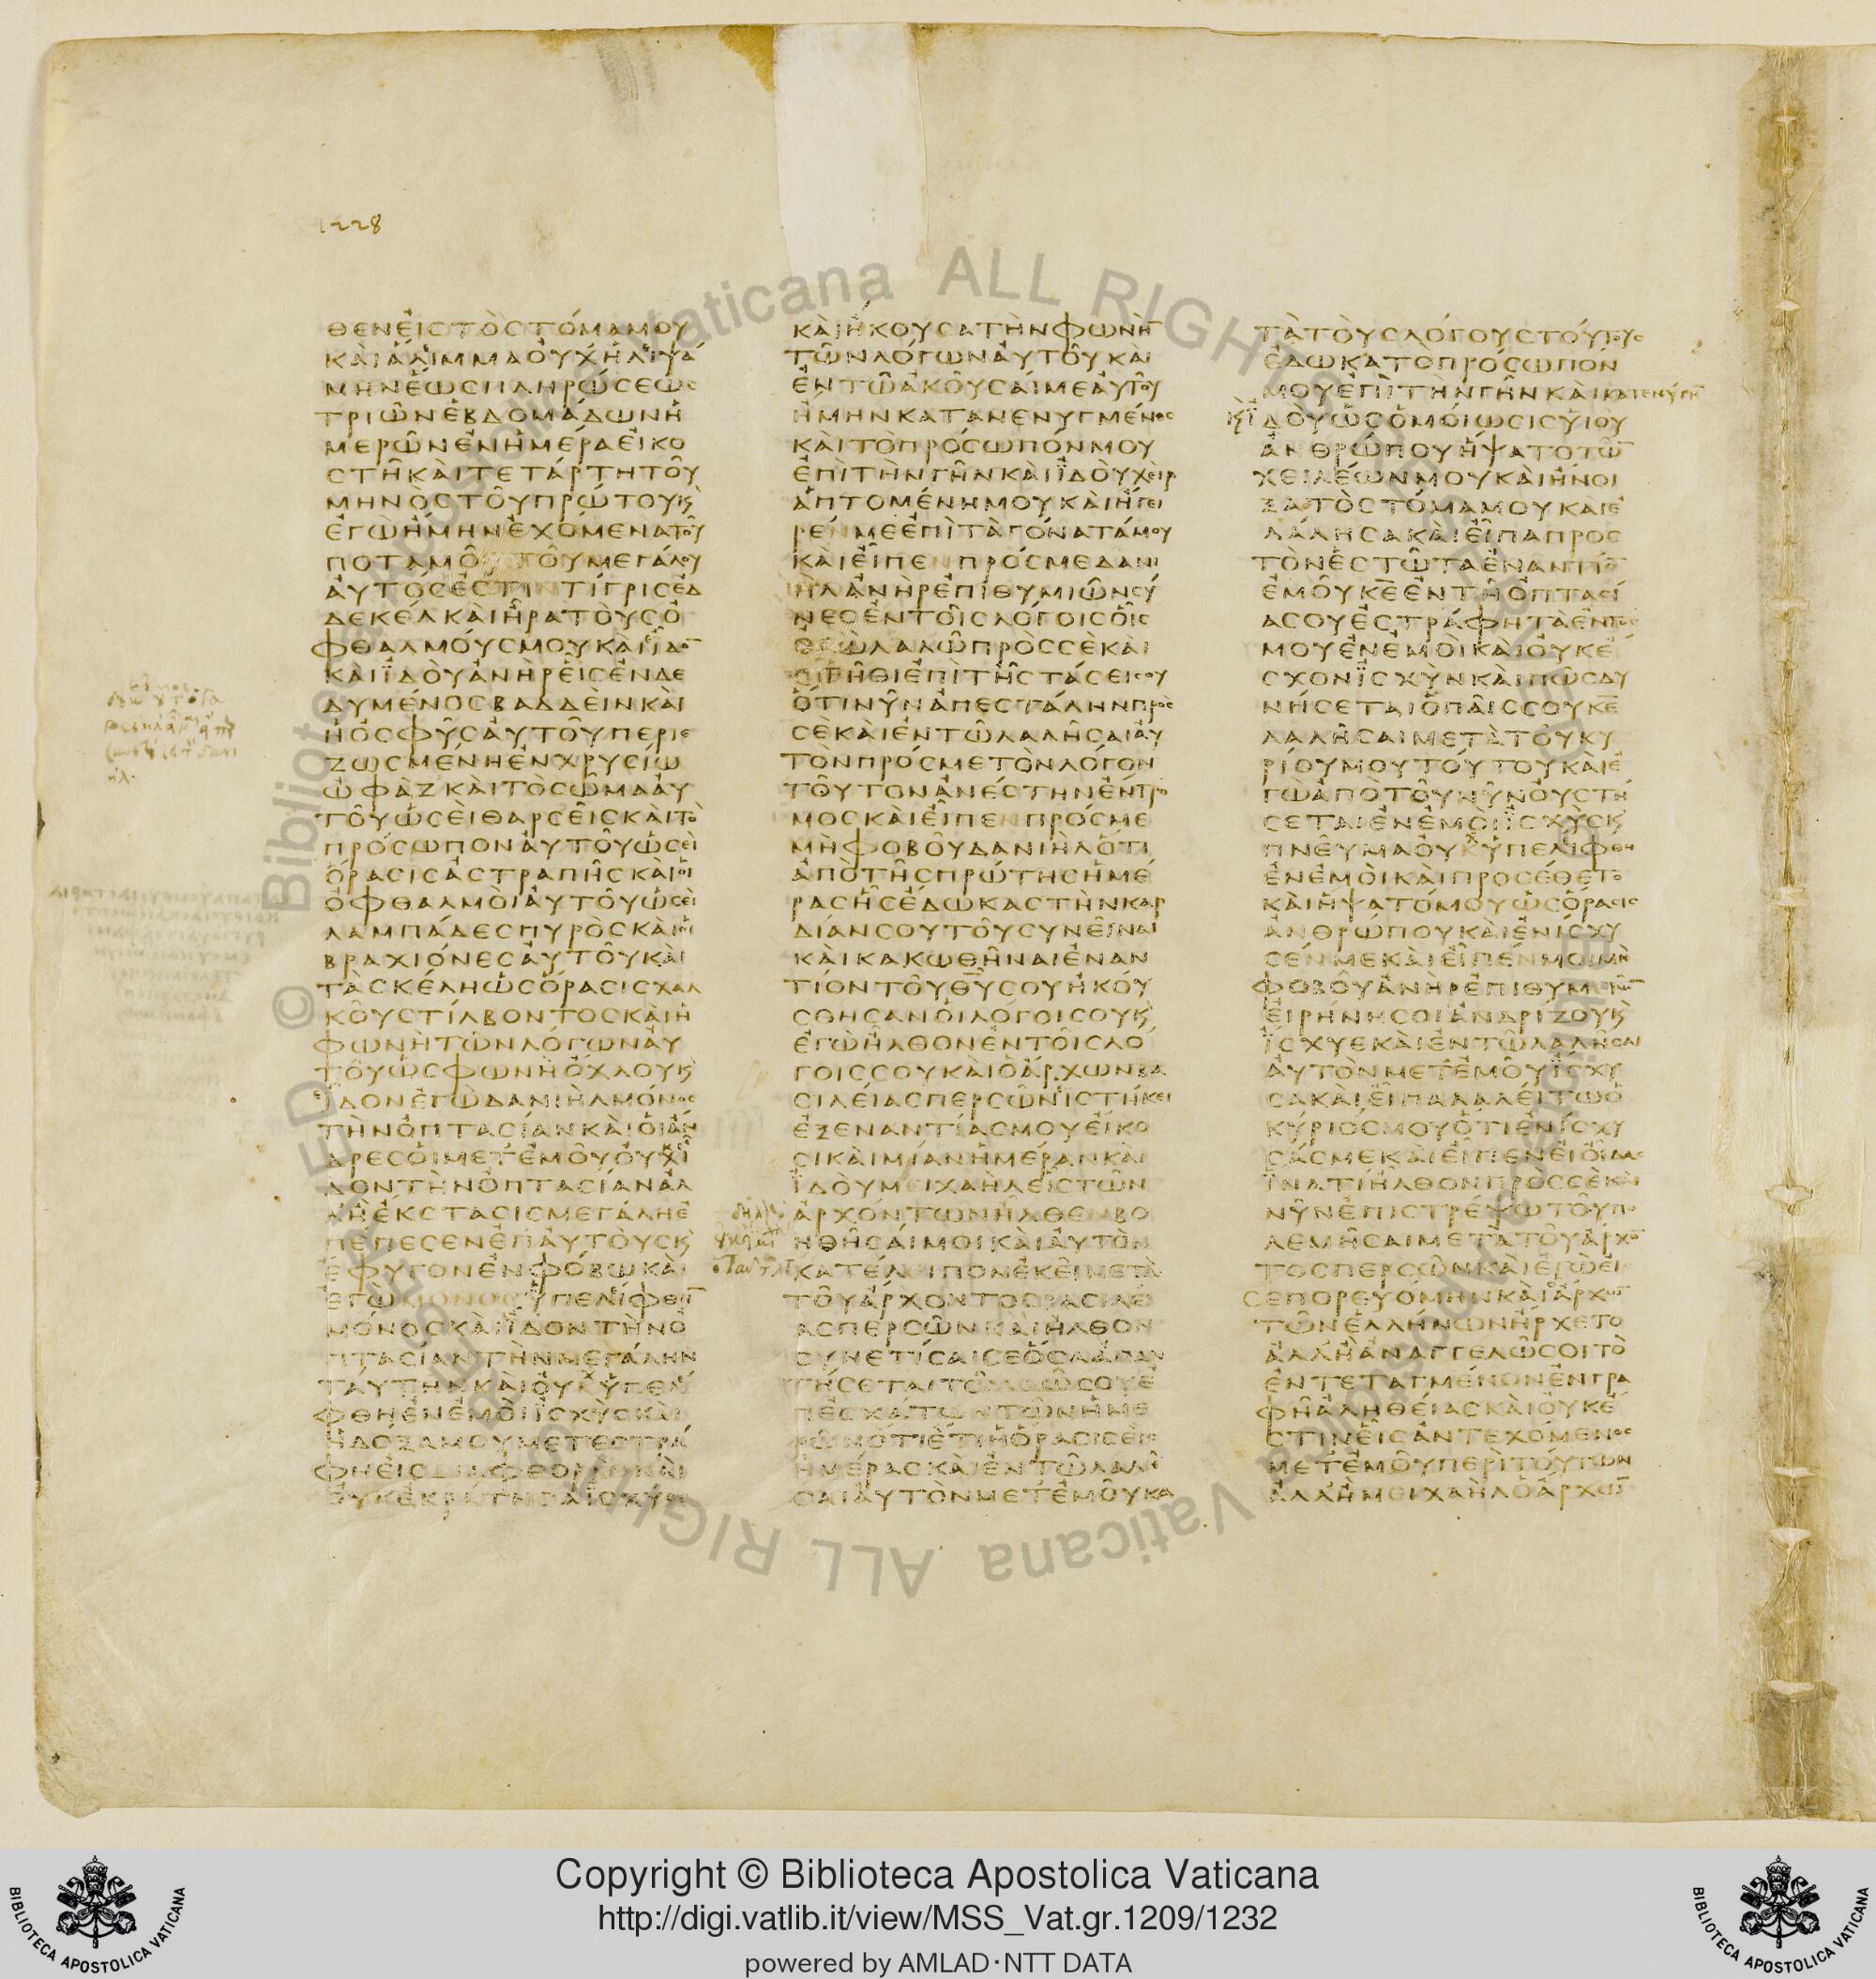 1228
ΘΕΝΕΙΣΤΟΣΤΟΜΑΜΟΥ
ΚΑΙΑΛΙΜΜΑΟΥΧΗΛΙΨΑ
ΜΗΝΕΩΣΠΛΗΡΩΣΕΩΣ
ΤΡΙΩΝΕΒΔΟΜΑΔΩΝΗ
ΜΕΡΩΝΕΝΗΜΕΡΑΕΙΚΟ
ΣΤΗΚΑΙΤΕΤΑΡΤΗΤΟΥ
ΜΗΝΟΣΤΟΥΠΡΩΤΟΥΚ
ΕΓΩΗΜΗΝΕΧΟΜΕΝΑΤΟΥ
ΠΟΤΑΜΟΥΤΟΥΜΕΓΑΛΟΥ
ΑΥΤΟΣΕΣΤΙΝΤΙΓΡΙΣΕΔ
ΔΕΚΕΛΚΑΙΗΡΑΤΟΥΣΟ
ΦΘΑΛΜΟΥΣΜΟΥΚΑΙΙΔΟ
ΚΑΙΙΔΟΥΑΝΗΡΕΙΣΕΝΔΕ
ΔΥΜΕΝΟΣΒΑΔΔΕΙΝΚΑΙ
ΗΟΣΦΥΣΑΥΤΟΥΠΕΡΙΕ
ΖΩΣΜΕΝΗΕΝΧΡΥΣΙΩ
ΩΦΑΖΚΑΙΤΟΣΩΜΑΑΥ
ΤΟΥΩΣΕΙΘΑΡΣΕΙΣΚΑΙΤΟ
ΠΡΟΣΩΠΟΝΑΥΤΟΥΩΣΕΙ
ΟΡΑΣΙΣΑΣΤΡΑΠΗΣΚΑΙΟΙ
ΟΦΘΑΛΜΟΙΑΥΤΟΥΩΣΕΙ
ΛΑΜΠΑΔΕΣΠΥΡΟΣΚΑΙΟΙ
ΒΡΑΧΙΟΝΕΣΑΥΤΟΥΚΑΙ
ΤΑΣΚΕΛΗΩΣΟΡΑΣΙΣΧΑΛ
ΚΟΥΣΤΙΛΒΟΝΤΟΣΚΑΙΗ
ΦΩΝΗΤΩΝΛΟΓΩΝΑΥ
ΤΟΥΩΣΦΩΝΗΟΧΛΟΥΚ
ΕΙΔΟΝΕΓΩΔΑΝΙΗΛΜΟΝΟΣ
ΤΗΝΟΠΤΑΣΙΑΝΚΑΙΟΙΑΝ
ΔΡΕΣΟΙΜΕΤΕΜΟΥΟΥΚΕΙ
ΔΟΝΤΗΝΟΠΤΑΣΙΑΝΑΛ
ΛΗΕΚΣΤΑΣΙΣΜΕΓΑΛΗΕ
ΠΕΠΕΣΕΝΕΠΑΥΤΟΥΣΚ
ΕΦΥΓΟΝΕΝΦΟΒΩΚΑΙ
ΕΓΩΜΟΝΟΣΥΠΕΛΙΦΘΗΝ
ΜΟΝΟΣΚΑΙΙΔΟΝΤΗΝΟ
ΠΤΑΣΙΑΝΤΗΝΜΕΓΑΛΗΝ
ΤΑΥΤΗΝΚΑΙΟΥΚΥΠΕΛΙ
ΦΘΗΕΝΕΜΟΙΙΣΧΥΣΚΑΙ
ΗΔΟΞΑΜΟΥΜΕΤΕΣΤΡΑ
ΦΗΕΙΣΔΙΑΦΘΟΡΑΝΚΑΙ
ΟΥΚΕΚΡΑΤΗΣΑΙΣΧΥΟΣ
ΚΑΙΗΚΟΥΣΑΤΗΝΦΩΝΗΝ
ΤΩΝΛΟΓΩΝΑΥΤΟΥΚΑΙ
ΕΝΤΩΑΚΟΥΣΑΙΜΕΑΥΤΟΥ
ΗΜΗΝΚΑΤΑΝΕΝΥΓΜΕΝΟΣ
ΚΑΙΤΟΠΡΟΣΩΠΟΝΜΟΥ
ΕΠΙΤΗΝΓΗΝΚΑΙΙΔΟΥΧΕΙΡ
ΑΠΤΟΜΕΝΗΜΟΥΚΑΙΗΓΕΙ
ΡΕΝΜΕΕΠΙΤΑΓΟΝΑΤΑΜΟΥ
ΚΑΙΕΙΠΕΝΠΡΟΣΜΕΔΑΝΙ
ΗΛΑΝΗΡΕΠΙΘΥΜΙΩΝΣΥ
ΝΕΣΕΝΤΟΙΣΛΟΓΟΙΣΟΙΣ
ΕΓΩΛΑΛΩΠΡΟΣΣΕΚΑΙ
ΣΤΗΘΙΕΠΙΤΗΣΤΑΣΕΙΣΟΥ
ΟΤΙΝΥΝΑΠΕΣΤΑΛΗΝΠΡΟΣ
ΣΕΚΑΙΕΝΤΩΛΑΛΗΣΑΙΑΥ
ΤΟΝΠΡΟΣΜΕΤΟΝΛΟΓΟΝ
ΤΟΥΤΟΝΑΝΕΣΤΗΝΕΝΤΡΟ
ΜΟΣΚΑΙΕΙΠΕΝΠΡΟΣΜΕ
ΜΗΦΟΒΟΥΔΑΝΙΗΛΟΤΙ
ΑΠΟΤΗΣΠΡΩΤΗΣΗΜΕ
ΡΑΣΗΣΕΔΩΚΑΣΤΗΝΚΑΡ
ΔΙΑΝΣΟΥΤΟΥΣΥΝΕΙΝΑΙ
ΚΑΙΚΑΚΩΘΗΝΑΙΕΝΑΝ
ΤΙΟΝΤΟΥΘΥΣΟΥΗΚΟΥ
ΣΘΗΣΑΝΟΙΛΟΓΟΙΣΟΥΚ
ΕΓΩΗΛΘΟΝΕΝΤΟΙΣΛΟ
ΓΟΙΣΣΟΥΚΑΙΟΑΡΧΩΝΒΑ
ΣΙΛΕΙΑΣΠΕΡΣΩΝΙΣΤΗΚΕΙ
ΕΞΕΝΑΝΤΙΑΣΜΟΥΕΙΚΟ
ΣΙΚΑΙΜΙΑΝΗΜΕΡΑΝΚΑΙ
ΙΔΟΥΜΕΙΧΑΗΛΕΙΣΤΩΝ
ΑΡΧΟΝΤΩΝΗΛΘΕΝΒΟ
ΗΘΗΣΑΙΜΟΙΚΑΙΑΥΤΟΝ
ΚΑΤΕΛΙΠΟΝΕΚΕΙΜΕΤΑ
ΤΟΥΑΡΧΟΝΤΟΣΒΑΣΙΛΕΙ
ΑΣΠΕΡΣΩΝΚΑΙΗΛΘΟΝ
ΣΥΝΕΤΙΣΑΙΣΕΟΣΑΑΠΑΝ
ΤΗΣΕΤΑΙΤΩΛΑΩΣΟΥΕ
ΠΕΣΧΑΤΩΝΤΩΝΗΜΕ
ΡΩΝΟΤΙΕΤΙΗΟΡΑΣΙΣΕΙΣ
ΗΜΕΡΑΣΚΑΙΕΝΤΩΛΑΛΗ
ΣΑΙΑΥΤΟΝΜΕΤΕΜΟΥΚΑ
ΤΑΤΟΥΣΛΟΓΟΥΣΤΟΥΤΟΥΣ
ΕΔΩΚΑΤΟΠΡΟΣΩΠΟΝ
ΜΟΥΕΠΙΤΗΝΓΗΝΚΑΙΚΑΤΕΝΥΓΗΝ
ΚΙΔΟΥΩΣΟΜΟΙΩΣΙΣΥΙΟΥ
ΑΝΘΡΩΠΟΥΗΨΑΤΟΤΩΝ
ΧΕΙΛΕΩΝΜΟΥΚΑΙΗΝΟΙ
ΞΑΤΟΣΤΟΜΑΜΟΥΚΑΙΕ
ΛΑΛΗΣΑΚΑΙΕΙΠΑΠΡΟΣ
ΤΟΝΕΣΤΩΤΑΕΝΑΝΤΙΟΝ
ΕΜΟΥΚΕΕΝΤΗΟΠΤΑΣΙ
ΑΣΟΥΕΣΤΡΑΦΗΤΑΕΝΤΟΣ
ΜΟΥΕΝΕΜΟΙΚΑΙΟΥΚΕ
ΣΧΟΝΙΣΧΥΝΚΑΙΠΩΣΔΥ
ΝΗΣΕΤΑΙΟΠΑΙΣΣΟΥΚΕ
ΛΑΛΗΣΑΙΜΕΤΑΤΟΥΚΥ
ΡΙΟΥΜΟΥΤΟΥΤΟΥΚΑΙΕ
ΓΩΑΠΟΤΟΥΝΥΝΟΥΣΤΗ
ΣΕΤΑΙΕΝΕΜΟΙΙΣΧΥΣΚ
ΠΝΕΥΜΑΟΥΚΥΠΕΛΙΦΘΗ
ΕΝΕΜΟΙΚΑΙΠΡΟΣΕΘΕΤΟ
ΚΑΙΗΨΑΤΟΜΟΥΩΣΟΡΑΣΙΣ
ΑΝΘΡΩΠΟΥΚΑΙΕΝΙΣΧΥ
ΣΕΝΜΕΚΑΙΕΙΠΕΝΜΟΙΜΗ
ΦΟΒΟΥΑΝΗΡΕΠΙΘΥΜΙΩΝ
ΕΙΡΗΝΗΣΟΙΑΝΔΡΙΖΟΥΚ
ΙΣΧΥΕΚΑΙΕΝΤΩΛΑΛΗΣΑΙ
ΑΥΤΟΝΜΕΤΕΜΟΥΙΣΧΥ
ΣΑΚΑΙΕΙΠΑΛΑΛΕΙΤΩΟ
ΚΥΡΙΟΣΜΟΥΟΤΙΕΝΙΣΧΥ
ΣΑΣΜΕΚΑΙΕΙΠΕΝΕΙΟΙΔΑΣ
ΙΝΑΤΙΗΛΘΟΝΠΡΟΣΣΕΚΑΙ
ΝΥΝΕΠΙΣΤΡΕΨΩΤΟΥΠΟ
ΛΕΜΗΣΑΙΜΕΤΑΤΟΥΑΡΧΟΝ
ΤΟΣΠΕΡΣΩΝΚΑΙΕΓΩΕΙ
ΣΕΠΟΡΕΥΟΜΗΝΚΑΙΑΡΧΩΝ
ΤΩΝΕΛΛΗΝΩΝΗΡΧΕΤΟ
ΑΛΛΗΑΝΑΓΓΕΛΩΣΟΙΤΟ
ΕΝΤΕΤΑΓΜΕΝΟΝΕΝΓΡΑ
ΦΗΑΛΗΘΕΙΑΣΚΑΙΟΥΚΕ
ΣΤΙΝΕΙΣΑΝΤΕΧΟΜΕΝΟΣ
ΜΕΤΕΜΟΥΠΕΡΙΤΟΥΤΩΝ
ΑΛΛΗΜΕΙΧΑΗΛΟΑΡΧΩΝ
Copyright © Biblioteca Apostolica Vaticana
http://digi.vatlib.it/view/MSS_Vat.gr.1209/1232
powered by AMLAD·NTT DATA